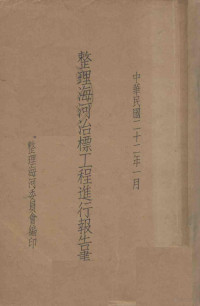 中華民國二十二年一月
整理海河治標工程進行報告書
整理海河委員會編印